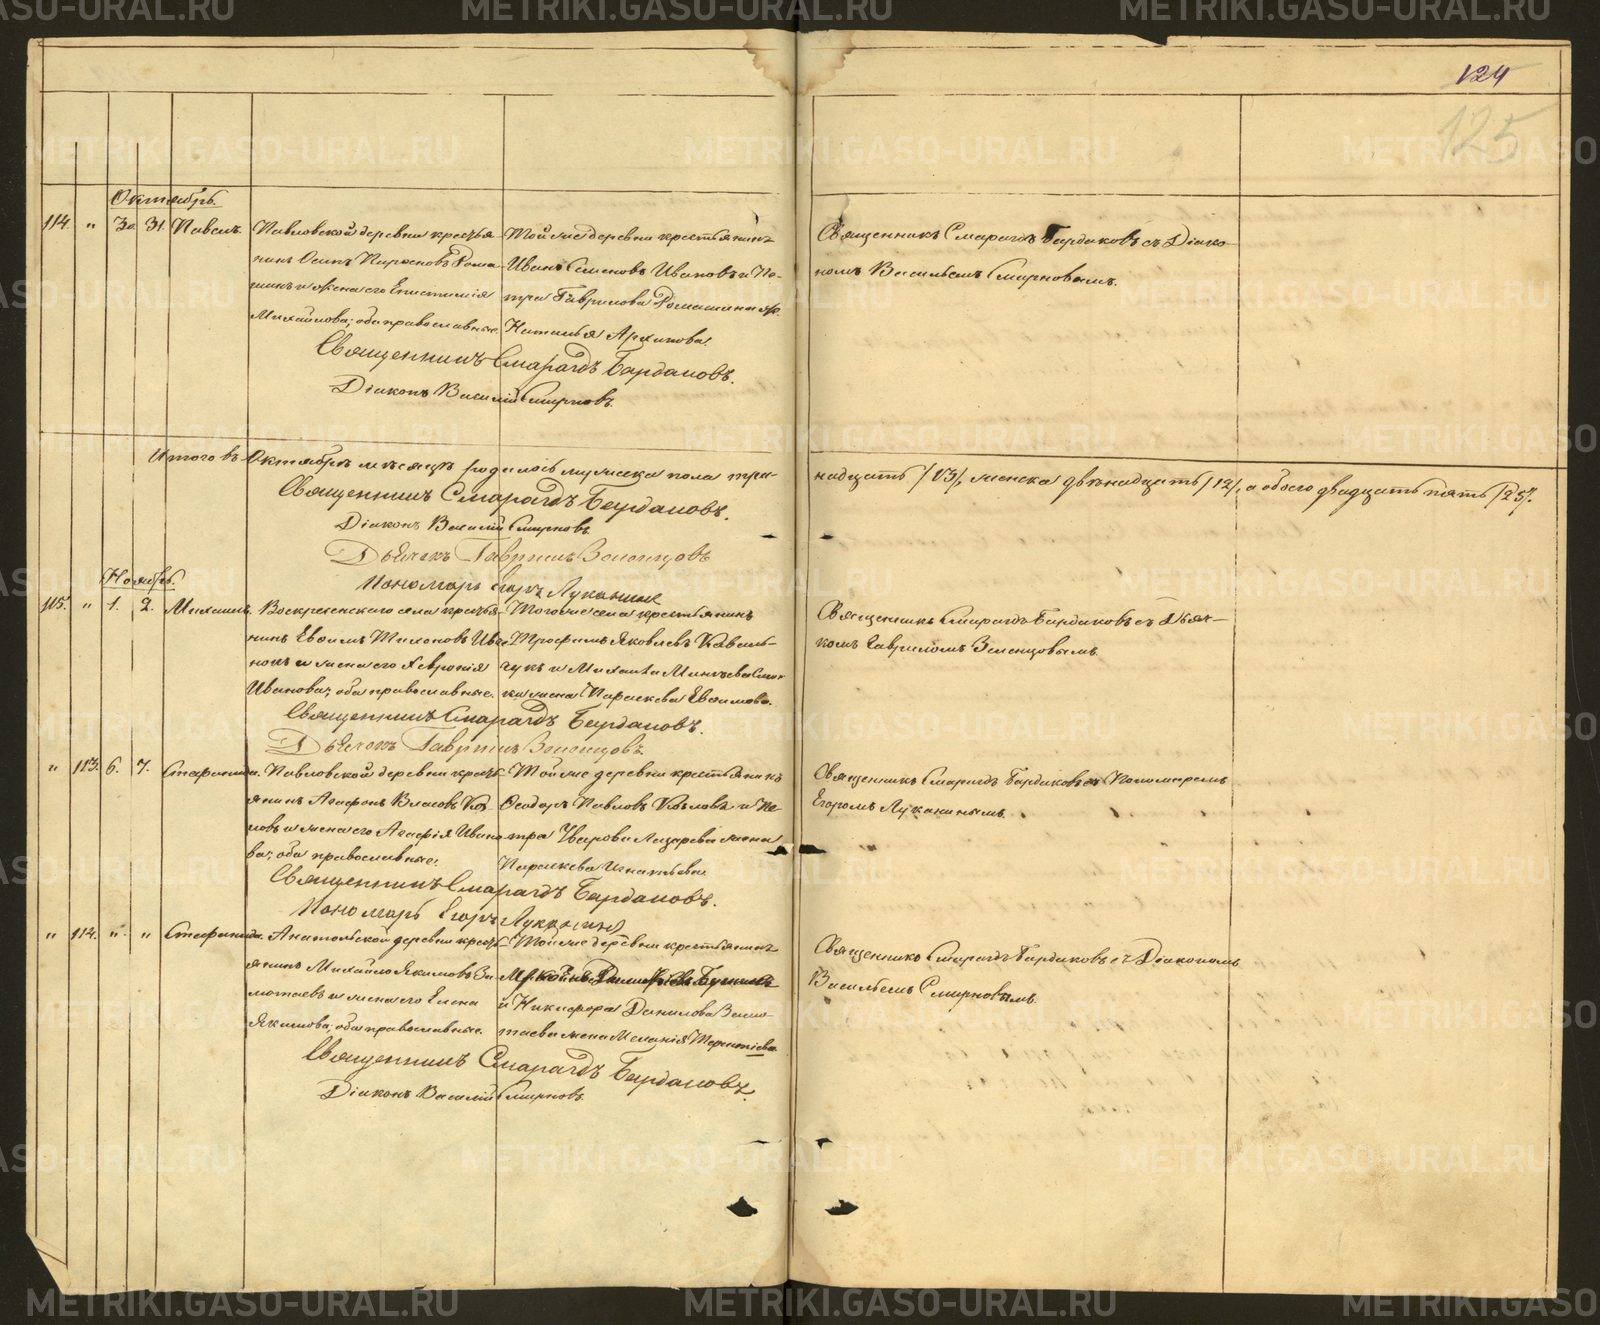 124
125
Октябрь.
114. " 30 31. Павелъ.
Павловской деревни крестья-
нинъ Осипъ Рома-
шинъ и жена его Епистимія
Михайлова; оба православные.
Той же деревни крестьянинъ
Иванъ Семеновъ Ивановъ и Пе-
тра Гаврилова Ромашина
Наталья Архипова.
Священникъ Смарагдъ Бардаковъ съ Діако-
номъ Васильемъ Смирновымъ.
Священникъ Смарагдъ Бардаковъ.
Діаконъ Василій Смирновъ.
Итого въ Октябрѣ мѣсяцѣ родилось мужеска пола три-
надцать /13/, женска двѣнадцать /12/, а обоего двадцать пять /25/.
Священникъ Смарагдъ Бардаковъ.
Діаконъ Василій Смирновъ.
Дьячекъ Гавріилъ Зеленцовъ
Пономарь Егоръ Луканинъ
Ноябрь.
115. " 1. 2. Михаилъ.
Воскресенскаго села крестья-
нинъ Евѳимъ Тихоновъ
и жена его Хевронія
Иванова; оба православные.
Того же села крестьянинъ
Трофимъ Яковлевъ Коваль-
чукъ и Михаила
жена Параскева Евѳимова.
Священникъ Смарагдъ Бардаковъ съ Дьяч-
комъ Гавриломъ Зеленцовымъ.
Священникъ Смарагдъ Бардаковъ.
Дьячекъ Гавріилъ Зеленцовъ.
" 113. 6. 7. Стефанида.
Павловской деревни кресть-
янинъ Агафонъ Власовъ Коз-
ловъ и жена его Агафія Ивано-
ва; оба православные.
Той же деревни крестьянинъ
Ѳеодоръ Павловъ Козловъ и Пе-
тра Уварова Лазарева жена
Параскева Игнатьева.
Священникъ Смарагдъ Бардаковъ съ Пономаремъ
Егоромъ Луканинымъ.
Священникъ Смарагдъ Бардаковъ.
Пономарь Егоръ Луканинъ
" 114. " " Стефанида.
Анатольской деревни кресть-
янинъ Михайло Якимовъ За-
мотаевъ и жена его Елена
Якимова; оба православные.
Той же деревни крестьянинъ
и Никифора Данилова Замо-
таева жена Меланія Терентіева.
Священникъ Смарагдъ Бардаковъ съ Діакономъ
Васильемъ Смирновымъ.
Священникъ Смарагдъ Бардаковъ.
Діаконъ Василій Смирновъ.
METRIKI.GASO-URAL.RU